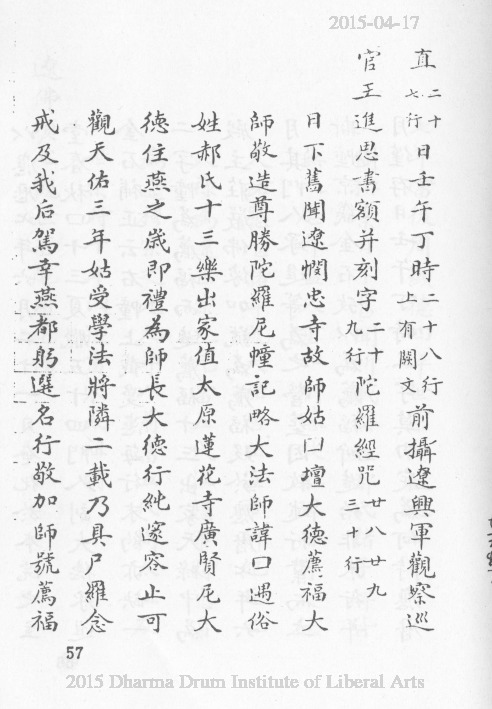 2015-04-17
直二十七行日壬午丁時二十八行上有闕文前攝遼興軍觀察巡
官王進思書額并刻字二十九行陀羅經咒廿八廿九三十行
日下舊聞遼憫忠寺故師姑口壇大德薦福大
師敬造尊勝陀羅尼幢記略大法師諱口遇俗
姓郝氏十三樂出家值太原蓮花寺廣賢尼大
德住燕之歲即禮為師長大德行純邃容止可
觀天佑三年姑受學法將隣二載乃具尸羅念
戒及我后駕幸燕都躬選名行敬加師號薦福
57
2015 Dharma Drum Institute of Liberal Arts